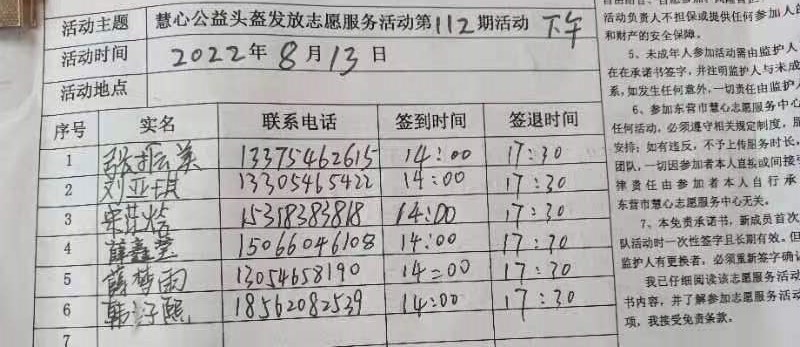 活动主题 慧心公益头盔发放志愿服务活动第112期活动 下午
活动时间 2022年8月13日
活动地点
序号 实名 联系电话 签到时间 签退时间
1 张振美 13375462615 14:00 17:30
2 刘亚琪 13305465422 14:00 17:30
3 15318383818 14:00 17:30
4 薛鑫莹 15066046108 14:00 17:30
5 薛梦雨 13054658190 14:00 17:30
6 韩子熙 18562082539 14:00 17:30
7
活动负责人不担保或提供任何参加人的
和财产的安全保障。
5、未成年人参加活动需由监护人
在在承诺书签字，并注明监护人与未成
系，如发生任何意外，一切责任由监护人
6、参加东营市慧心志愿服务中心
任何活动，必须遵守相关规定制度，服
安排；如有违反，不予上传服务时长，
团队，一切因参加者本人直接或间接引
律责任由参加者本人自行承
东营市慧心志愿服务中心无关。
7、本免责承诺书，新成员首次
队活动时一次性签字且长期有效。但
监护人有更换者，必须重新签字确认
我已仔细阅读该志愿服务活动
书内容，并了解参加志愿服务活动
项，我接受免责条款。